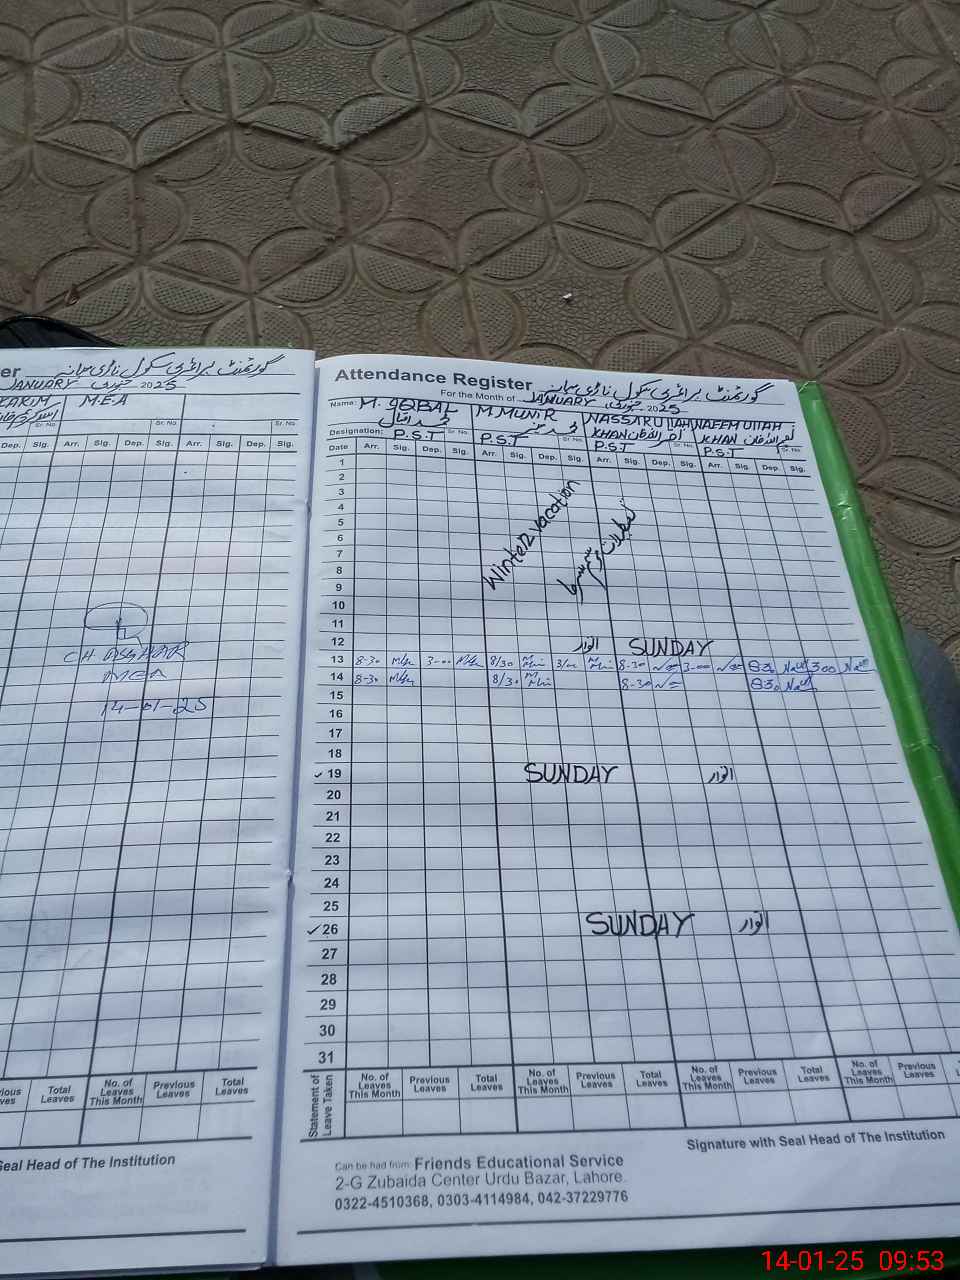 er گورنمنٹ پرائمری سکول ناڑی میانہ
JANUARY جنوری 2025
KARIM M.E.A
Sr. No. Sr. No.
Dep. Sig. Arr. Sig. Dep. Sig. Arr. Sig. Dep. Sig.
CH ASGHAR
MEA
14-01-25
vious ves Total Leaves No. of Leaves This Month Previous Leaves Total Leaves
Seal Head of The Institution
Attendance Register گورنمنٹ پرائمری سکول ناڑی میانہ
For the Month of JANUARY جنوری 2025
Name: M. IQBAL M.MUNIR NASSARULLAH NAEEMULLAH
محمد اقبال محمد منیر KHAN نصراللہ خان KHAN نعیم اللہ خان
Designation: P.S.T Sr. No. P.S.T Sr. No. P.S.T Sr. No. P.S.T Sr. No.
Date Arr. Sig. Dep. Sig. Arr. Sig. Dep. Sig. Arr. Sig. Dep. Sig. Arr. Sig. Dep. Sig.
1
2
3
4
5
6
7
8
9
10
11
Winter vacation
تعطیلات موسم سرما
12 اتوار SUNDAY
13 8-30 3-00 8/30 3/00 8-30 3-00 830 300
14 8-30 8/30 8-30 830
15
16
17
18
✓ 19 SUNDAY اتوار
20
21
22
23
24
25
✓ 26 SUNDAY اتوار
27
28
29
30
31
Statement of Leave Taken No. of Leaves This Month Previous Leaves Total Leaves No. of Leaves This Month Previous Leaves Total Leaves No. of Leaves This Month Previous Leaves Total Leaves No. of Leaves This Month Previous Leaves
Signature with Seal Head of The Institution
Can be had from: Friends Educational Service
2-G Zubaida Center Urdu Bazar, Lahore.
0322-4510368, 0303-4114984, 042-37229776
14-01-25 09:53